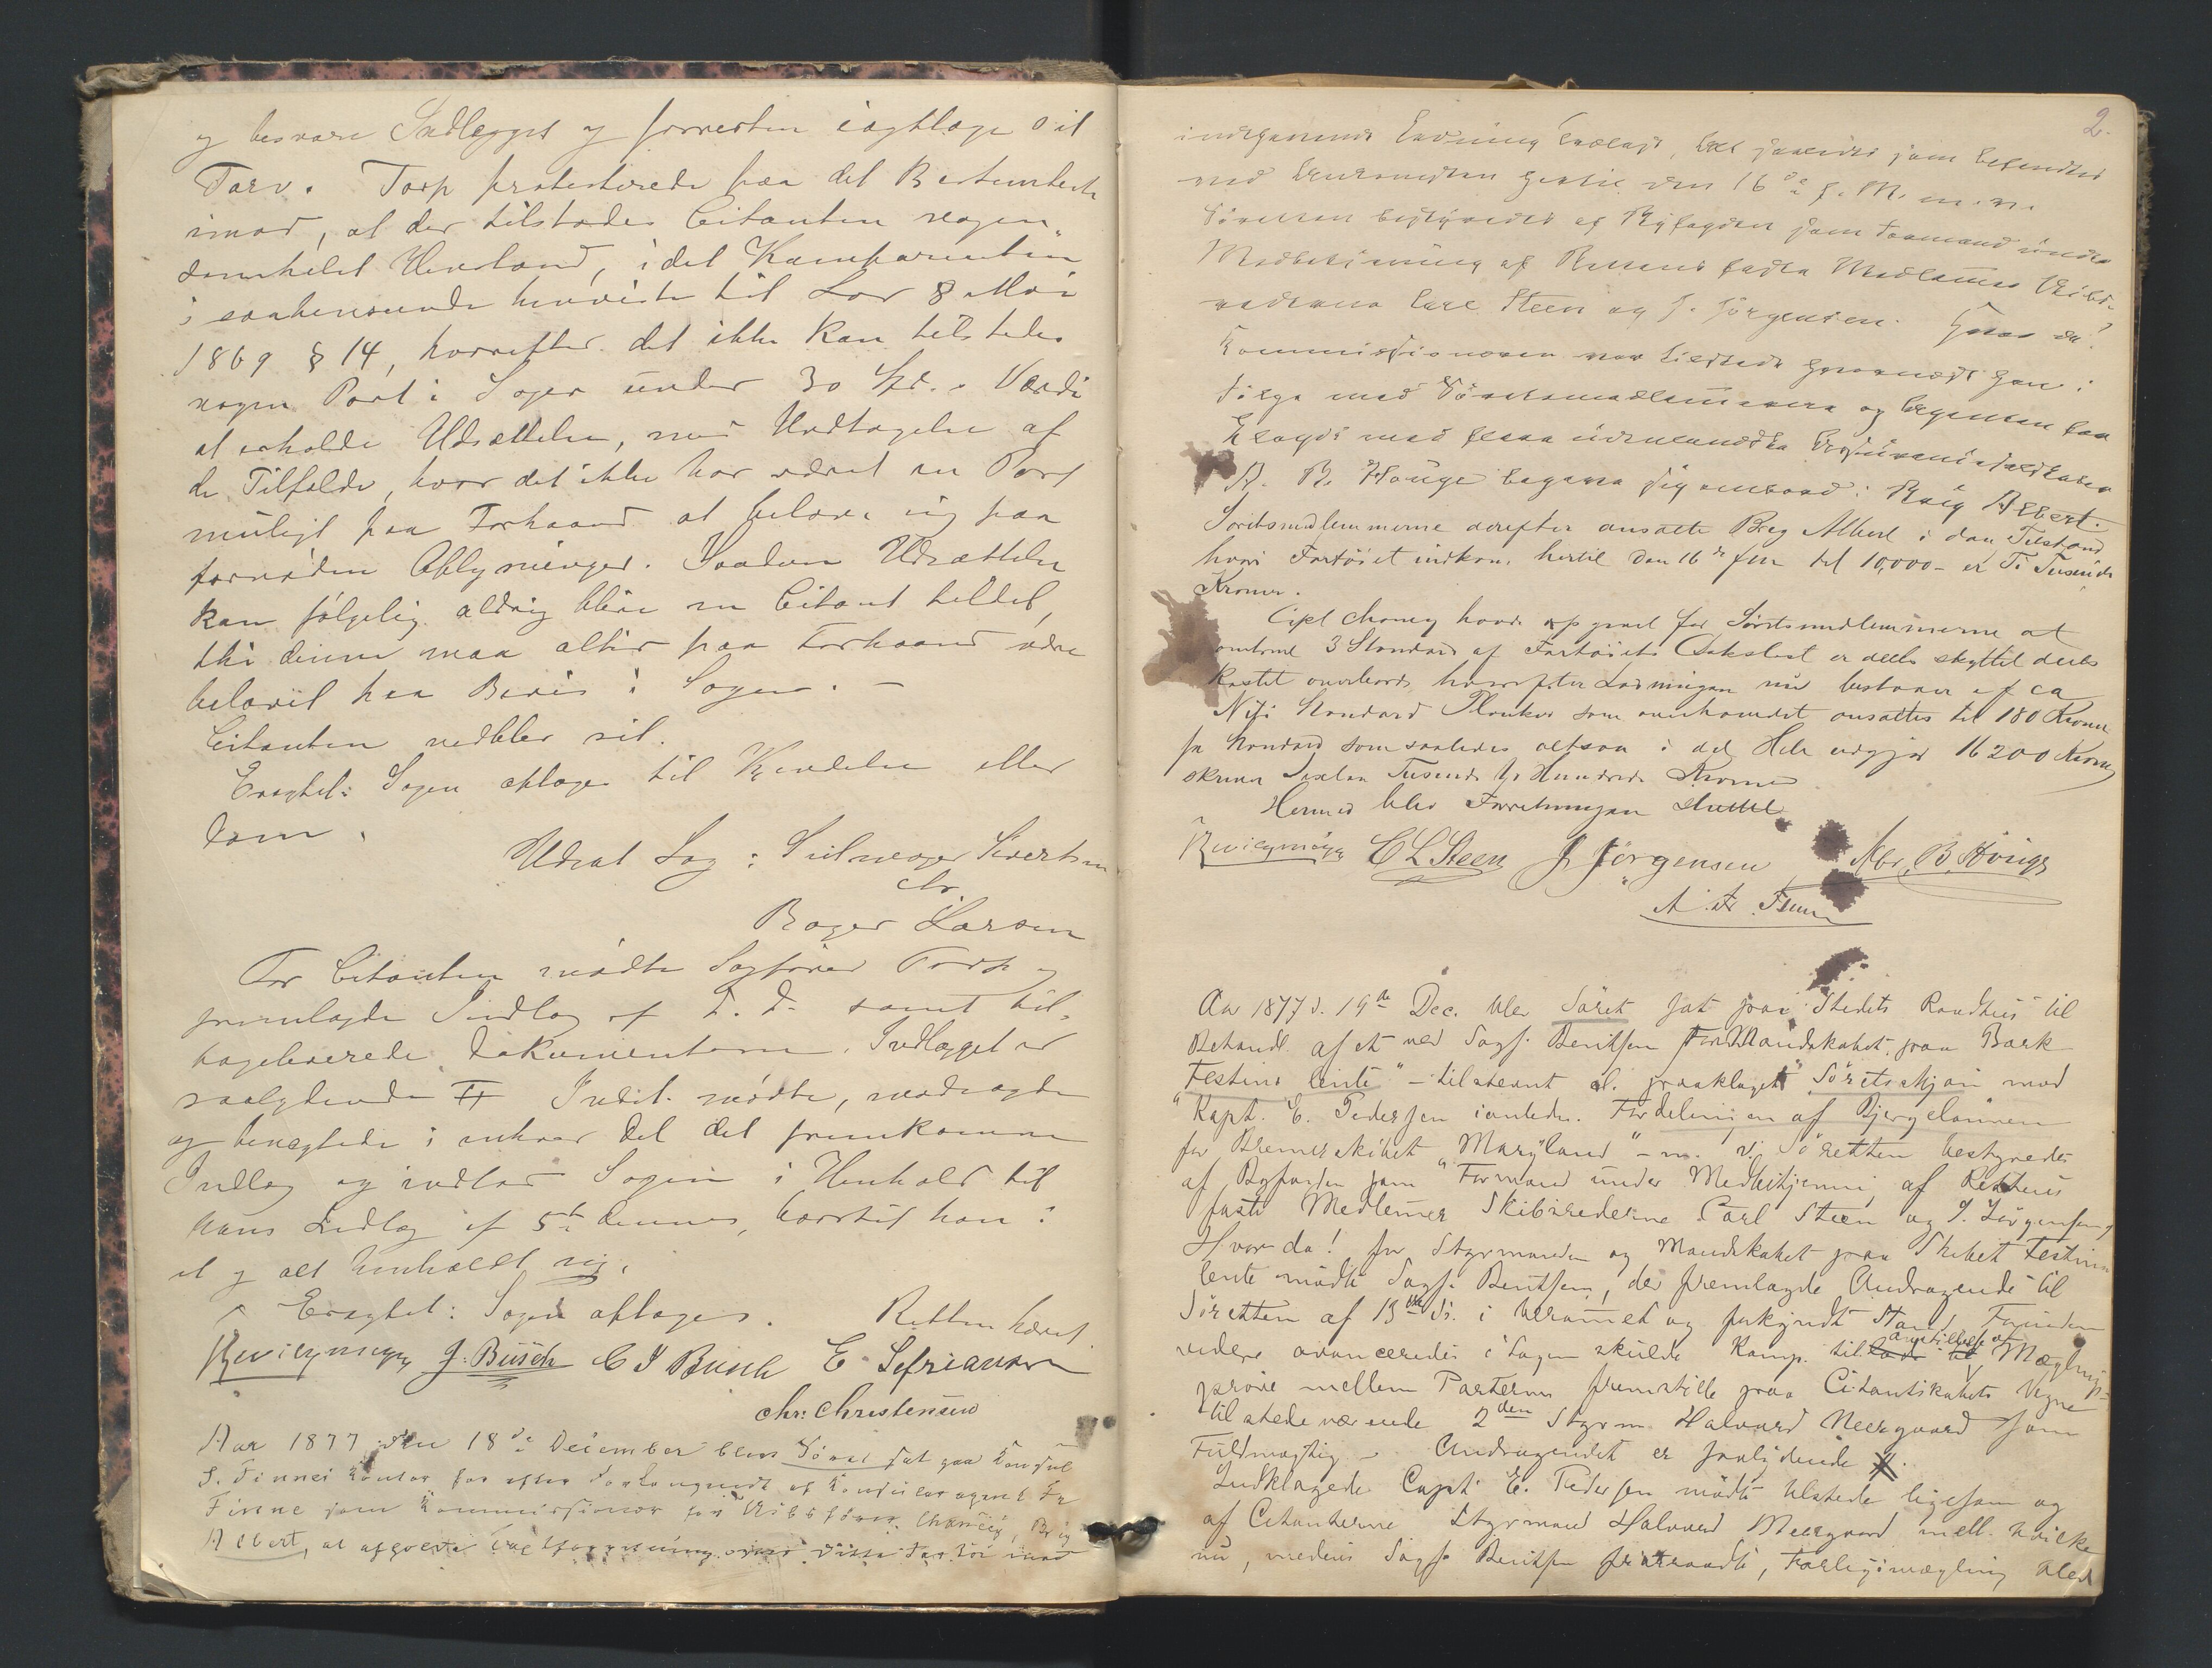 og besvare Indlegget og forresten iagttage sit
Tarv. Torp protesterede paa det Bestemteste
imod, at der tilstodes Citanten nogen
somhelst Udstand, idet Komparenten
i saahenseende henviste til Lov 8 Mai
1869 § 14, hvorefter det ikke kan tilstedes
nogen Part i Sager under 30 Spd.s Værdi
at erholde Udsættelse, med Undtagelse af
de Tilfælde, hvor det ikke har været en Part
muligt paa Forhaand at belave sig paa
fornødne Oplysninger. Saadan Udsættelse
kan følgelig aldrig blive en Citant tilstedt,
thi denne maa altid paa Forhaand være
belavet paa Bevis i Sagen. —
Citanten vedblev sit.
Eragtet: Sagen optages til Kjendelse eller
Dom.
Udsat Sag: Seilmager Sivertsen
ctr.
Bager Larsen
For Citanten mødte Sagfører Torp og
fremlagde Indlæg af D. D. samt til-
bageleverede Dokumenterne. Indlægget er
saalydende # Indst. mødte, modsagde
og benægtede i enhver Del det fremkomne
Indlæg og indlod Sagen i Henhold til
hans Indlæg af 5te dennes, hvortil han i
et og alt henholdt sig.
Eragtet: Sagen optages. Retten hævet
J. Busch C J Busch E Sefriansen
Chr: Christensen
Aar 1877 den 18de December blev Søret sat paa Konsul
F. Finnes Kontor for efter Forlangende af Konsularagent Fr
Finne som Kommissionær for Skibsfører Choney, Brig
Albert, at afgive Taxtforretning over dette Fartøi med
2.
indehavende Ladning Trælast, Alt saaledes som befandtes
ved Ankomsten hertil den 16de d. M. m. v.
Søretten bestyredes af Byfogden som Formand under
Medbetjening af Rettens faste Medlemer Skibs-
rederne Carl Steen og J. Jørgensen. Hvor da!
Kommissionæren var tilstede hvornæst han i
Følge med Søretsmedlemmerne og Agenten for
Lloyds med flere udenlandske Assuranceselskaber
A. B. Hauge begave sig ombord i Brig Albert.
Søretsmedlemmerne derefter ansatte Brig Albert i den Tilstand
hvori Fartøiet indkom hertil den 16de ds til 10,000 - er Ti Tusende
Kroner.
Capt Choney havde opgivet for Søretsmedlemmerne at
omtrent 3 Standard af Fartøiets Dækslast er dels skyllet dels
kastet overbord, hvorefter Ladningen nu bestaar af ca
Niti Standard Planker som overhovedet ansattes til 180 Kroner
pr Standard som saaledes altsaa i det Hele udgjør 16200 Kroner
skriver Sexten Tusende to Hundrede Kroner
Hermed blev Forretningen sluttet
C L Steen J Jørgensen Abr. B. Hauge
Aar 1877 d. 19de Dec. blev Søret sat paa Stedets Raadhus til
Behandl. af et ved Sagf. Bentsen for Mandskabet paa Bark
"Festina lente" — tilstevnt al. paaklaget Søretsskjøn mod
Kapt. E. Pedersen ianledn. Fordelingen af Bjergelønnen
for Bremerskibet "Maryland" — m. v. Søretten bestyredes
af Byfogden som Formand under Medbetjening af Rettens
faste Medlemer Skibsrederne Carl Steen og J. Jørgensen
Hvor da! for Styrmanden og Mandskabet paa Skibet Festina
lente mødte Sagf. Bentsen, der fremlagde Andragende til
Søretten af 13de ds. i beramet og forkyndt Stand. Forinden
videre avanceredes i Sagen skulde Komp. til anstillelse af Mæglings-
prøve mellem Parterne fremstille paa Citantskabets Vegne
tilstedeværende 2den Styrm. Halvard Neergaard som
Fuldmægtig — Andragendet er saalydende #.
Indklagede Capt. E. Pedersen mødte tilstede ligesom og
af Citanterne Styrmand Halvard Neergaard mell. hvilke
nu, medens Sagf Bentsen fratraadte, Forligsmægling blev